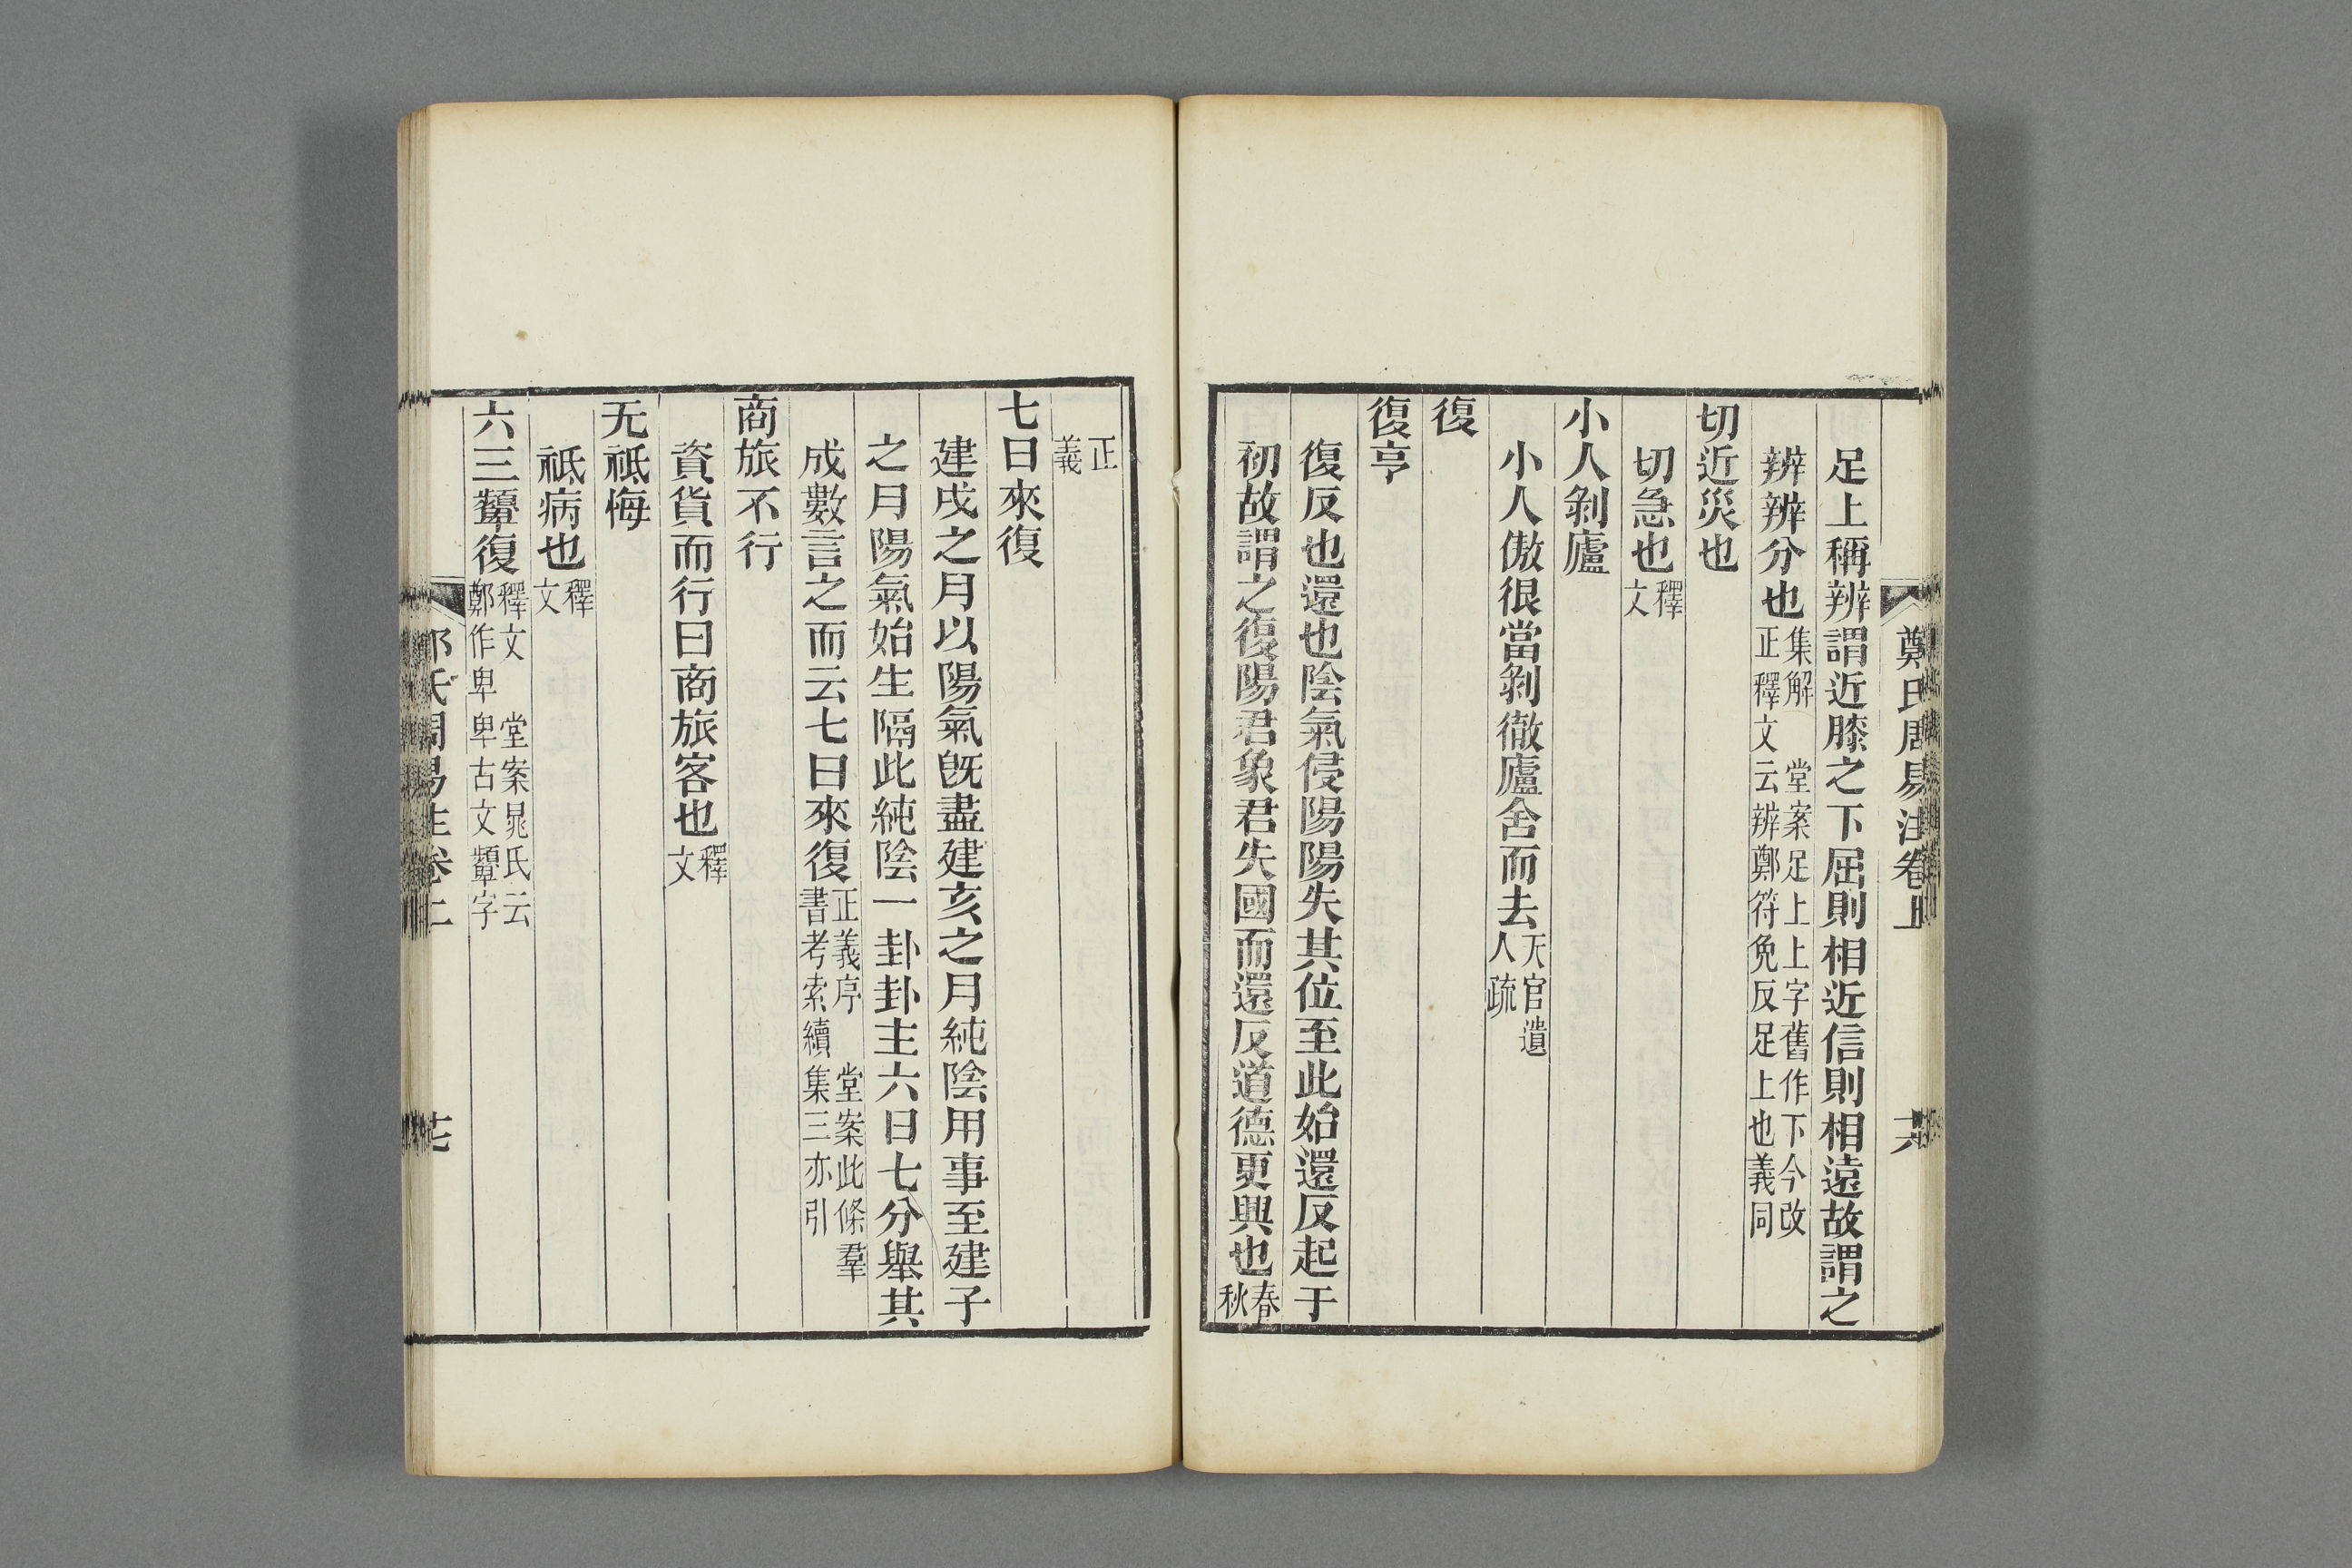 足上稱辨謂近膝之下屈則相近信則相遠故謂之
辨辨分也集解　堂案足上上字舊作下今改
正釋文云辨鄭符免反足上也義同
切近災也
切急也釋
文
小人剝廬
小人傲很當剝徹廬舍而去天官遺
人疏
復
復亨
復反也還也陰氣侵陽陽失其位至此始還反起于
初故謂之復陽君象君失國而還反道德更興也春
秋
鄭氏周易注卷上
六
正
義
七日來復
建戌之月以陽氣旣盡建亥之月純陰用事至建子
之月陽氣始生隔此純陰一卦卦主六日七分舉其
成數言之而云七日來復正義序　堂案此條羣
書考索續集三亦引
商旅不行
資貨而行曰商旅客也釋
文
无祗悔
祗病也釋
文
六三顰復釋文　堂案晁氏云
鄭作卑卑古文顰字